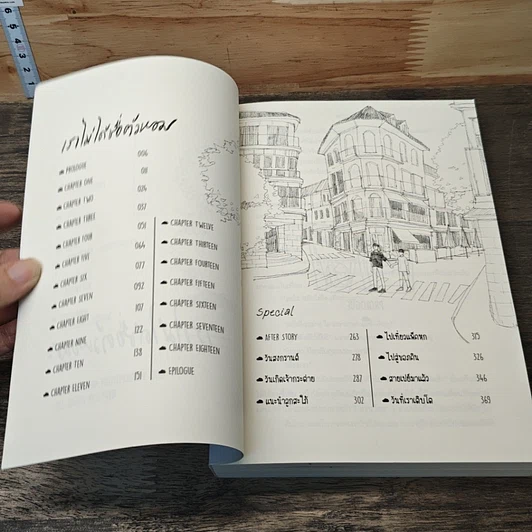 เราไม่ได้ชื่อตัวหอม
PROLOGUE 006
CHAPTER ONE 011
CHAPTER TWO 024
CHAPTER THREE 037
CHAPTER FOUR 051
CHAPTER FIVE 064
CHAPTER SIX 077
CHAPTER SEVEN 092
CHAPTER EIGHT 107
CHAPTER NINE 122
CHAPTER TEN 138
CHAPTER ELEVEN 151
CHAPTER TWELVE
CHAPTER THIRTEEN
CHAPTER FOURTEEN
CHAPTER FIFTEEN
CHAPTER SIXTEEN
CHAPTER SEVENTEEN
CHAPTER EIGHTEEN
EPILOGUE
Special
AFTER STORY 263
วันสงกรานต์ 278
วันเกิดเจ้ากระต่าย 287
แนะนำลูกสะใภ้ 302
ไปเที่ยวแพ็คหก 315
ไปสู่ขอภดิน 326
สายเปย์มาแล้ว 346
วันที่เราเติบโต 369
6
5
4
3
2
1